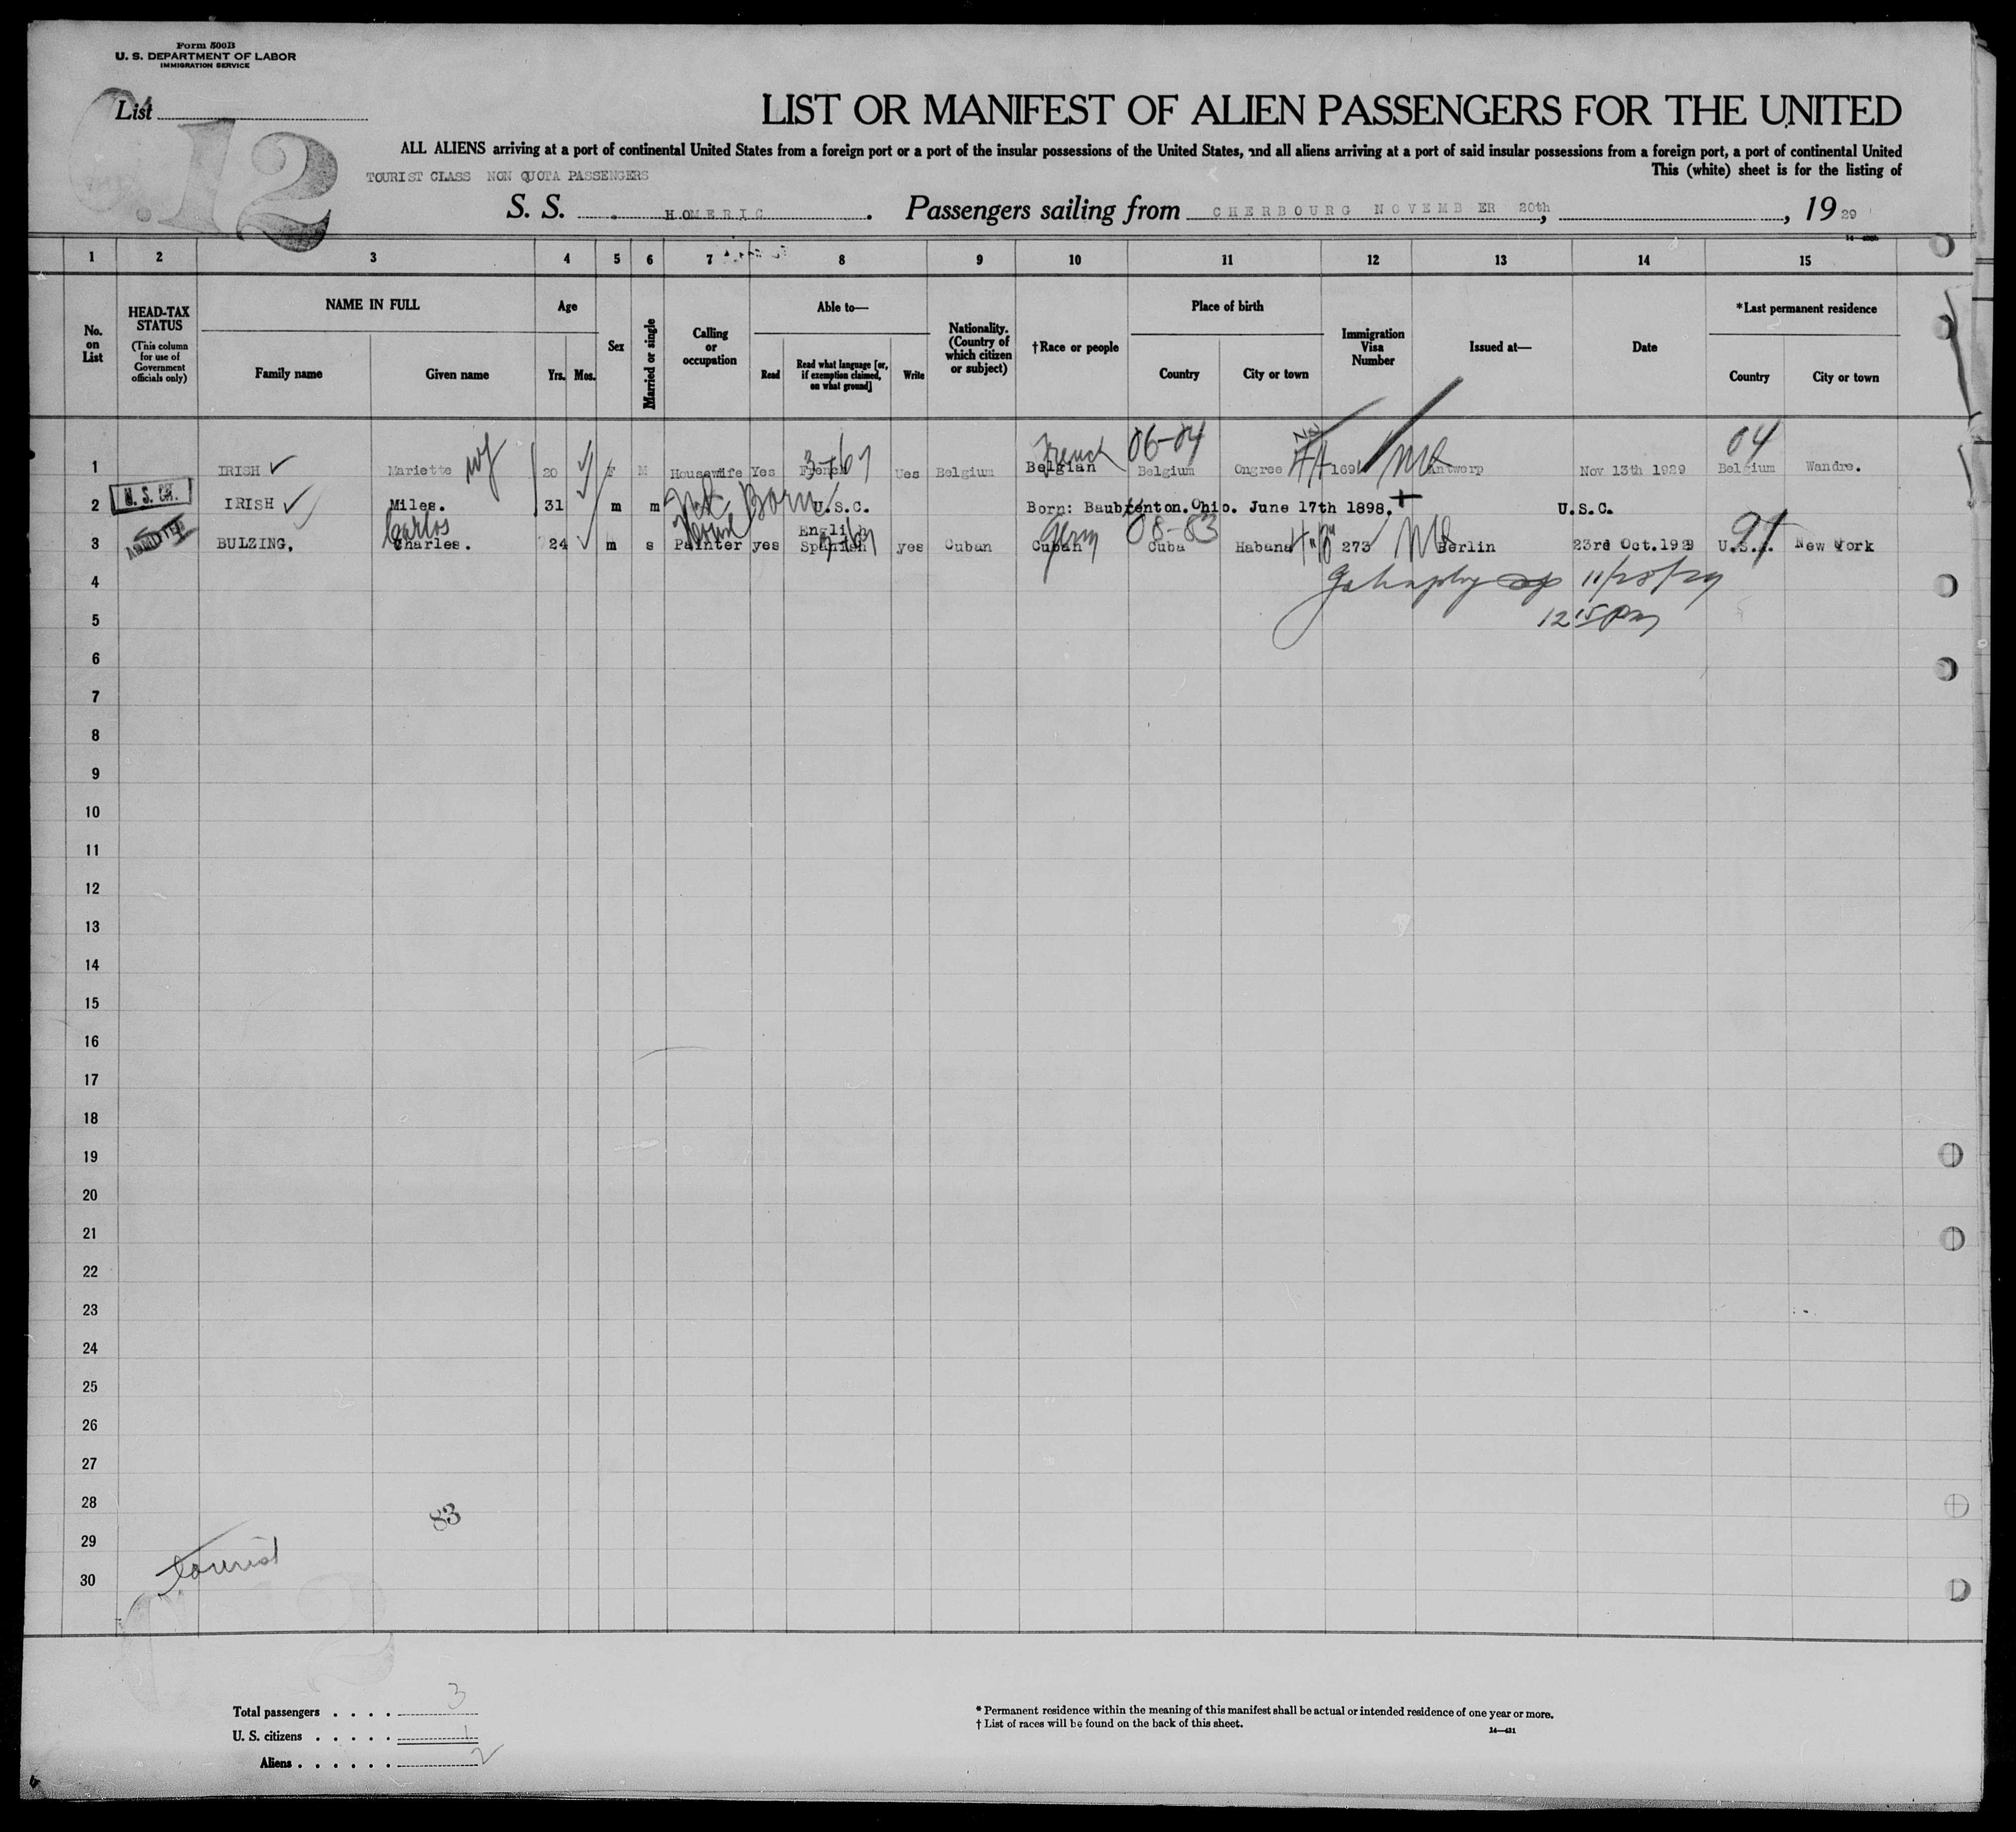 Form 500B
U. S. DEPARTMENT OF LABOR
IMMIGRATION SERVICE
List
12
LIST OR MANIFEST OF ALIEN PASSENGERS FOR THE UNITED
ALL ALIENS arriving at a port of continental United States from a foreign port or a port of the insular possessions of the United States, and all aliens arriving at a port of said insular possessions from a foreign port, a port of continental United
This (white) sheet is for the listing of
TOURIST CLASS NON QUOTA PASSENGERS
S. S. HOMERIC. Passengers sailing from CHERBOURG NOVEMBER 20th, , 1929
1 2 3 4 5 6 7 8 9 10 11 12 13 14 15
No. on List
HEAD-TAX STATUS
(This column for use of Government officials only)
NAME IN FULL
Family name Given name
Age
Yrs. Mos.
Sex
Married or single
Calling or occupation
Able to—
Read
Read what language [or, if exemption claimed, on what ground]
Write
Nationality. (Country of which citizen or subject)
†Race or people
Place of birth
Country City or town
Immigration Visa Number
Issued at—
Date
*Last permanent residence
Country City or town
wf 3-67 French 06-04 04
1 IRISH Mariette 20 F M Housewife Yes French Ues Belgium Belgian Belgium Ongree 1691 Antwerp Nov 13th 1929 Belgium Wandre.
2 IRISH Miles. 31 m m Born U.S.C. Born: Baubrenton.Ohio. June 17th 1898. U.S.C.
Carlos English Germ 08-83 91
ADMITTED
3 BULZING, Charles. 24 m s Painter yes Spanish yes Cuban Cuban Cuba Habana 273 Berlin 23rd Oct.1929 U.S.A. New York
4 11/28/29
5 12 15 pm
6
7
8
9
10
11
12
13
14
15
16
17
18
19
20
21
22
23
24
25
26
27
28
83
29
tourist
30
Total passengers . . . . 3
U. S. citizens . . . . . 1
Aliens . . . . . . 2
* Permanent residence within the meaning of this manifest shall be actual or intended residence of one year or more.
† List of races will be found on the back of this sheet.
14—431